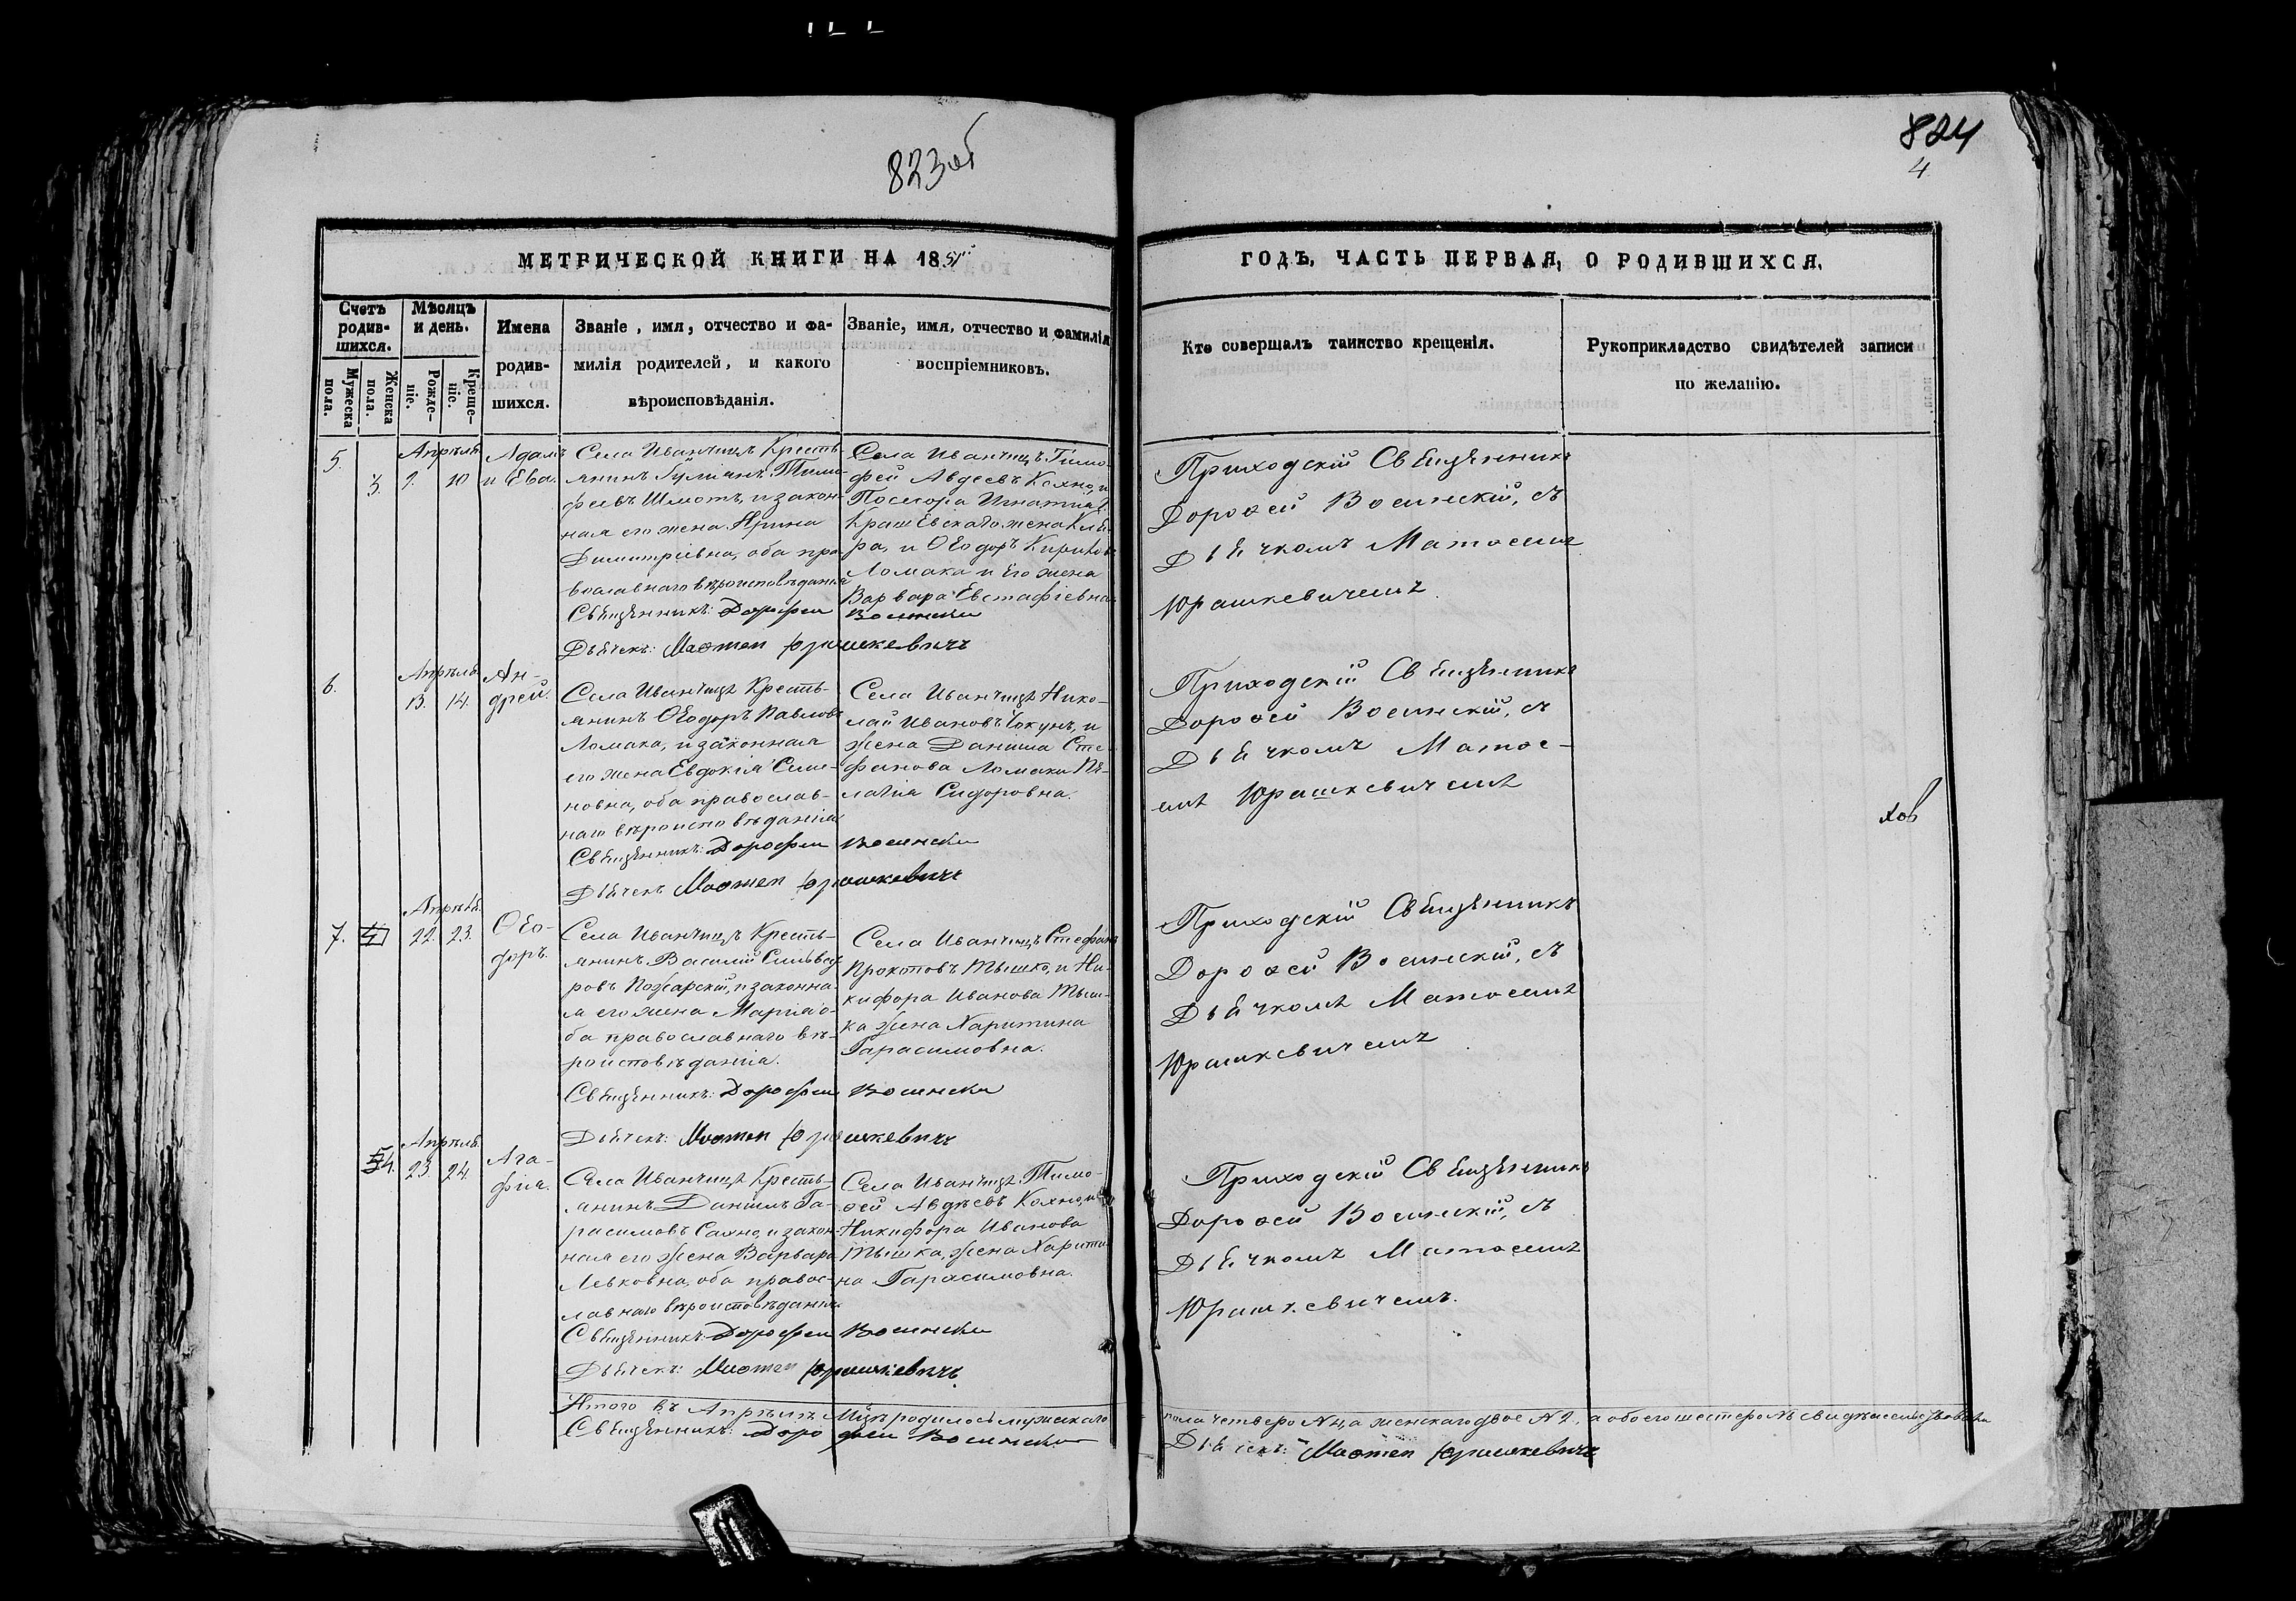 823об
824
4
МЕТРИЧЕСКОЙ КНИГИ НА 1851й
ГОДЪ, ЧАСТЬ ПЕРВАЯ, О РОДИВШИХСЯ.
Счетъ родив-шихся.
Мужеска пола.
Женска пола.
Мѣсяцъ и день.
Рожде-ніе.
Креще-ніе.
Имена родив-шихся.
Званіе, имя, отчество и фа-
милія родителей, и какого
вѣроисповѣданія.
Званіе, имя, отчество и фамилія
воспріемниковъ.
Кто совершалъ таинство крещенія.
Рукоприкладство свидѣтелей записи
по желанію.
5.
3.
Апрѣля
9. 10
Адамъ
и Ева.
Села Иванчицъ Кресть-
янинъ Тимо-
феевъ и закон-
ная его жена Ярина
Димитріевна, оба пра-
вославнаго вѣроисповѣданія
Священникъ: Дорофеи Восински
Дьячекъ: Матфеи Юрашкевичъ
Села Иванчицъ Тимо-
фей Авдеевъ Кохно, и
Посесора Игнатія
Крашевскаго жена
и Ѳеодоръ
Ломака и его жена
Варвара Евстафіевна
Приходскій Священникъ
Дороѳей Восинскій, съ
Дьячкомъ Матѳеемъ
Юрашкевичемъ.
6.
Апрѣля
13. 14.
Ан-
дрей.
Села Иванчицъ Кресть-
янинъ Ѳеодоръ Павловъ
Ломака, и законная
его жена Евдокія Симе-
новна, оба православ-
наго вѣроисповѣданія
Священникъ: Дорофеи Восински
Дьячекъ Матфеи Юрашкевичъ
Села Иванчицъ Нико-
лай Ивановъ Чокунъ, и
жена Данила Сте-
фанова Ломаки Пе-
лагія Сидоровна.
Приходскій Священникъ
Дороѳей Восинскій, съ
Дьячкомъ Матѳе-
емъ Юрашкевичемъ
7.
Апрѣля
22. 23.
Ѳео-
доръ.
Села Иванчицъ Кресть-
янинъ Василій Сильвест
ровъ Пожарскій, и законна-
я его жена Марія о-
ба православнаго вѣ-
роисповѣданія.
Священникъ: Дорофеи Восински
Дьячекъ: Матфеи Юрашкевичъ
Села Иванчицъ Стефанъ
Прокоповъ Тышко, и Ни-
кифора Иванова Тыш-
ка жена Харитина
Гарасимовна.
Приходскій Священникъ
Дороѳей Восинскій, съ
Дьячкомъ Матѳеемъ
Юрашкевичемъ
4.
Апрѣля
23. 24.
Ага-
фіа.
Села Иванчицъ Кресть-
янинъ Данилъ Га-
расимовъ Сахно, и закон-
ная его жена Варвара
Левковна, оба правос-
лавнаго вѣроисповѣданія
Священникъ: Дорофеи Восински
Дьячекъ: Матфеи Юрашкевичъ.
Села Иванчицъ Тимо-
ѳей Авдѣевъ Кохно, и
Никифора Иванова
Тышка, жена Харити-
на Гарасимовна.
Приходскій Священникъ
Дороѳей Восинскій, съ
Дьячкомъ Матѳеемъ
Юрашкевичемъ.
Итого въ Апрѣлѣ Мцѣ родилось мужскаго
пола четверо N 4, а женскаго двое N 2, а обоего шестеро N6
Священникъ: Дорофеи Восински
Дьячекъ: Матфеи Юрашкевичъ